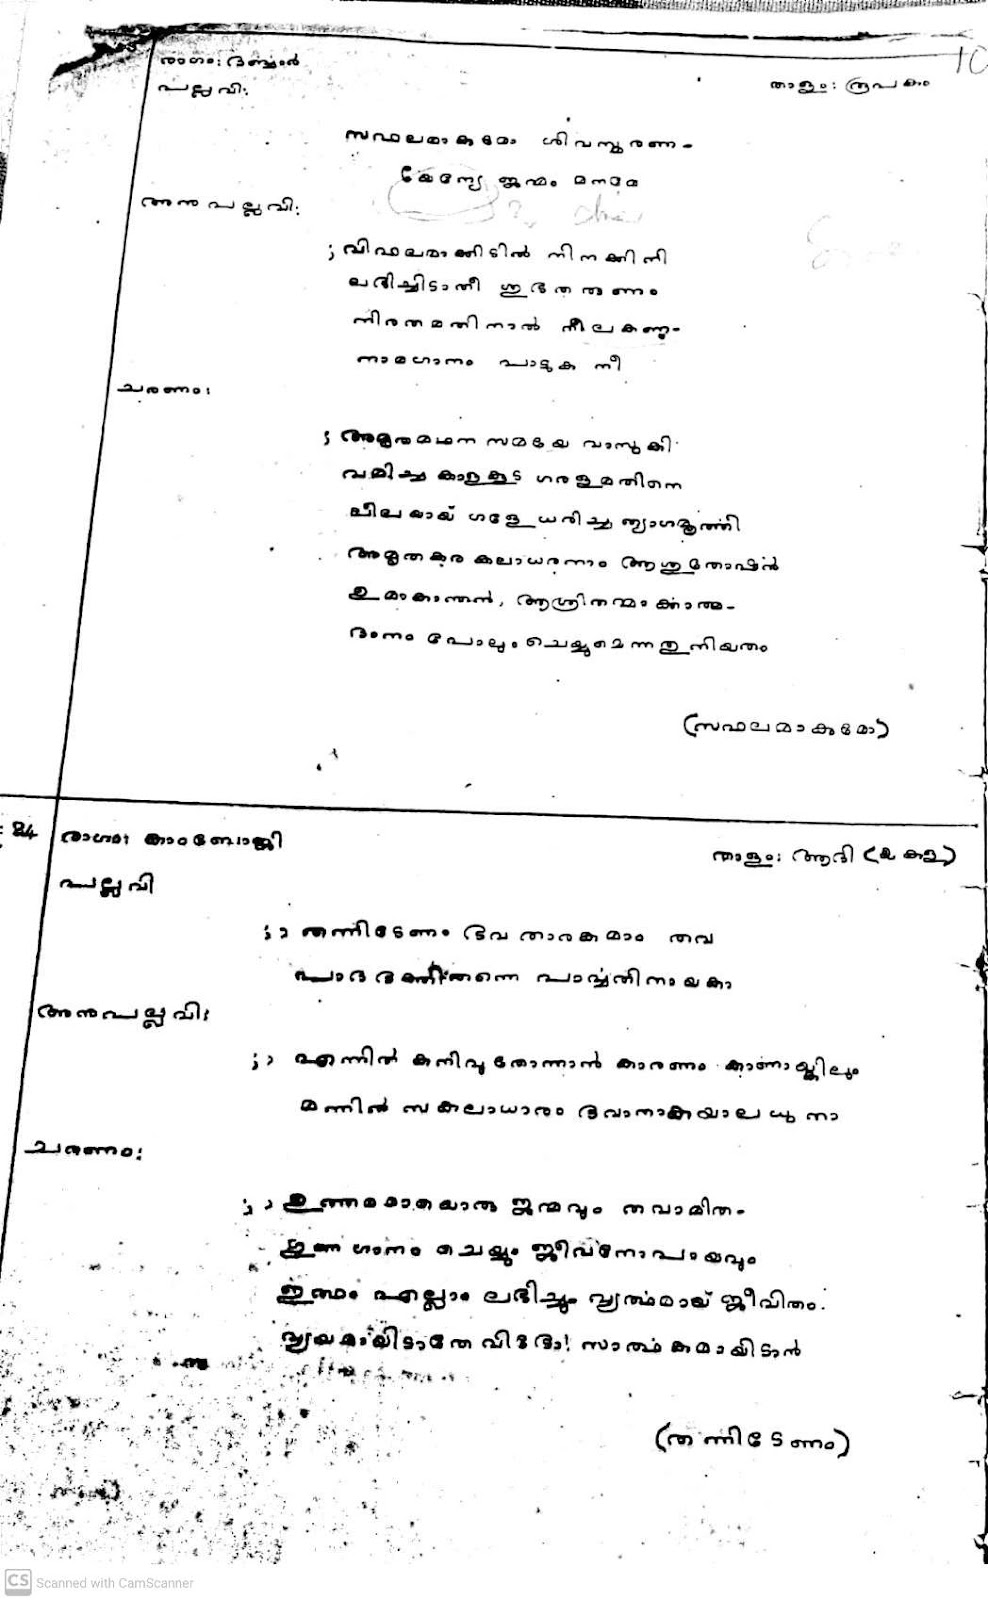 10
രാഗം: ദർബ്ബാർ
താളം: രൂപകം
പല്ലവി:
സഫലമാകുമോ ശിവസ്മരണ-
ജന്മം മനമേ
അനുപല്ലവി:
; വിഫലമാക്കിടിൽ നിനക്കിനി
ലഭിച്ചിടാതീ ശുഭതരുണം
നിരതമതിനാൽ നീലകണ്ഠ-
നാമഗാനം പാടുക നീ
ചരണം:
; അമൃതമഥന സമയേ വാസുകി
വമിച്ച കാളകൂട ഗരളമതിനെ
ലീലയായ് ഗളേ ധരിച്ച ത്യാഗമൂർത്തി
അമൃതകര കലാധരനാം ആശുതോഷൻ
ഉമാകാന്തൻ, ആശ്രിതന്മാർക്കാത്മ-
ദാനം പോലും ചെയ്യുമെന്നതു നിയതം
(സഫലമാകുമോ)
84
രാഗം: കാംബോജി
താളം: ആദി (൨ കള)
പല്ലവി
; , തന്നിടേണം ഭവ താരകമാം തവ
പാദ ഭക്തിതന്നെ പാർവ്വതിനായകാ
അനുപല്ലവി:
; , എന്നിൽ കനിവു തോന്നാൻ കാരണം കാണായ്കിലും
മന്നിൽ സകലാധാരം ഭവാനാകയാലധുനാ
ചരണം:
; , ഉത്തമമായൊരു ജന്മവും തവാമിത-
ഗുണ ഗാനം ചെയ്യും ജീവനോപായവും
ഇത്ഥം എല്ലാം ലഭിച്ചും വ്യർത്ഥമായ് ജീവിതം
വ്യയമായിടാതേ വിഭോ! സാർത്ഥകമായിടാൻ
(തന്നിടേണം)
CS Scanned with CamScanner